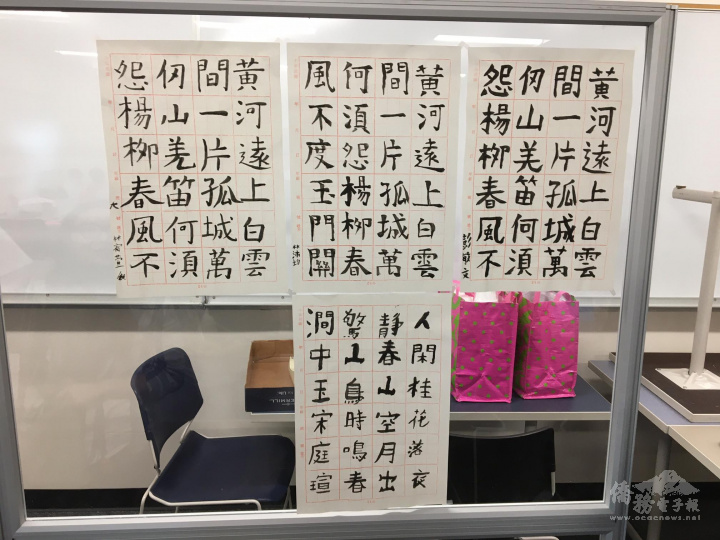 黃河遠上白雲
間一片孤城萬
仞山羌笛何須
怨楊柳春風不
黃河遠上白雲
間一片孤城萬
何須怨楊柳春
風不度玉門關
黃河遠上白雲
間一片孤城萬
仞山羌笛何須
怨楊柳春風不
人閑桂花落夜
静春山空月出
驚山鳥時鳴春
澗中玉宋庭瑄
僑務電子報
www.ocacnews.net